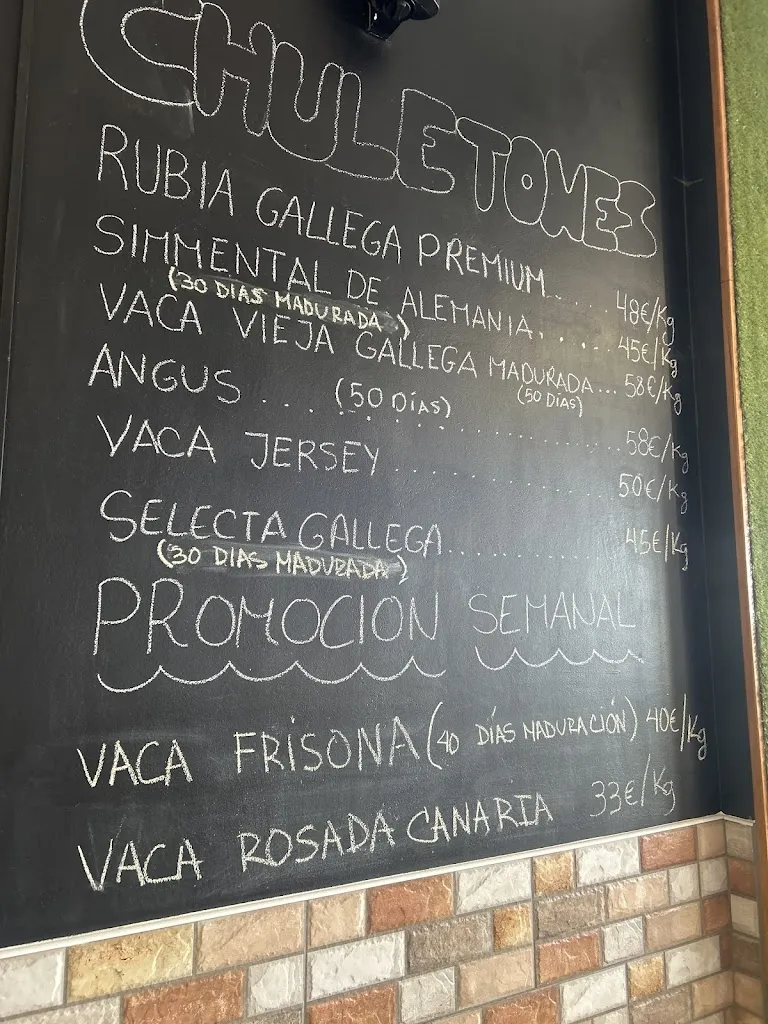 CHULETONES
RUBIA GALLEGA PREMIUM...... 48€/Kg
SIMMENTAL DE ALEMANIA..... 45€/Kg
(30 DIAS MADURADA)
VACA VIEJA GALLEGA MADURADA... 58€/Kg
(50 DÍAS)
ANGUS .... (50 DÍAS) .................... 58€/Kg
VACA JERSEY .................... 50€/Kg
SELECTA GALLEGA................ 45€/Kg
(30 DIAS MADURADA)
PROMOCION SEMANAL
VACA FRISONA (40 DÍAS MADURACIÓN) 40€/Kg
VACA ROSADA CANARIA 33€/Kg